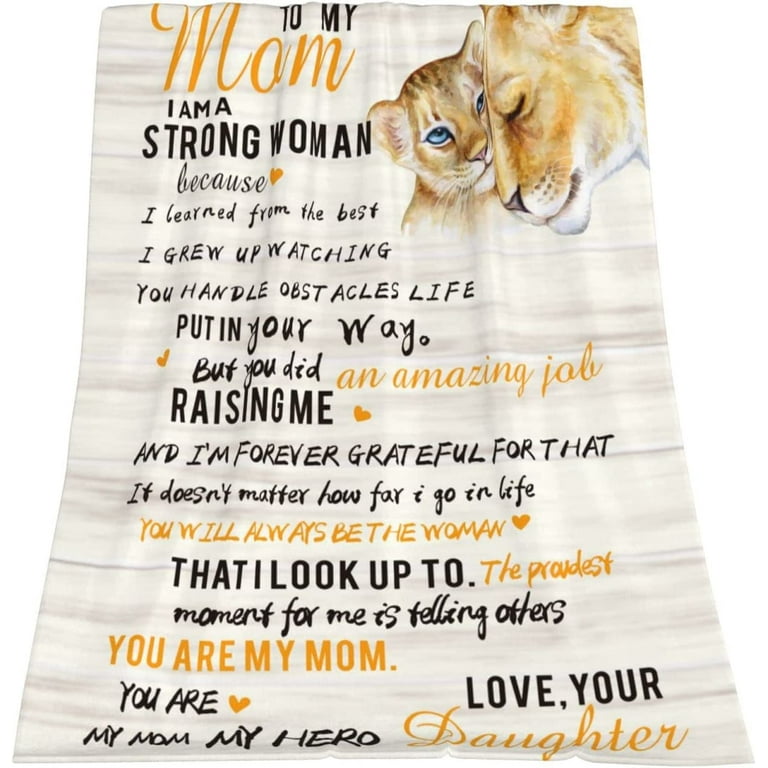 TO MY
Mom
I AM A
STRONG WOMAN
because
I learned from the best
I GREW UP WATCHING
YOU HANDLE OBSTACLES LIFE
PUT IN your way.
But you did an amazing job
RAISING ME
AND I'M FOREVER GRATEFUL FOR THAT
It doesn't matter how far i go in life
YOU WILL ALWAYS BE THE WOMAN
THAT I LOOK UP TO. The proudest
moment for me is telling others
YOU ARE MY MOM.
YOU ARE
MY MOM MY HERO
LOVE, YOUR
Daughter